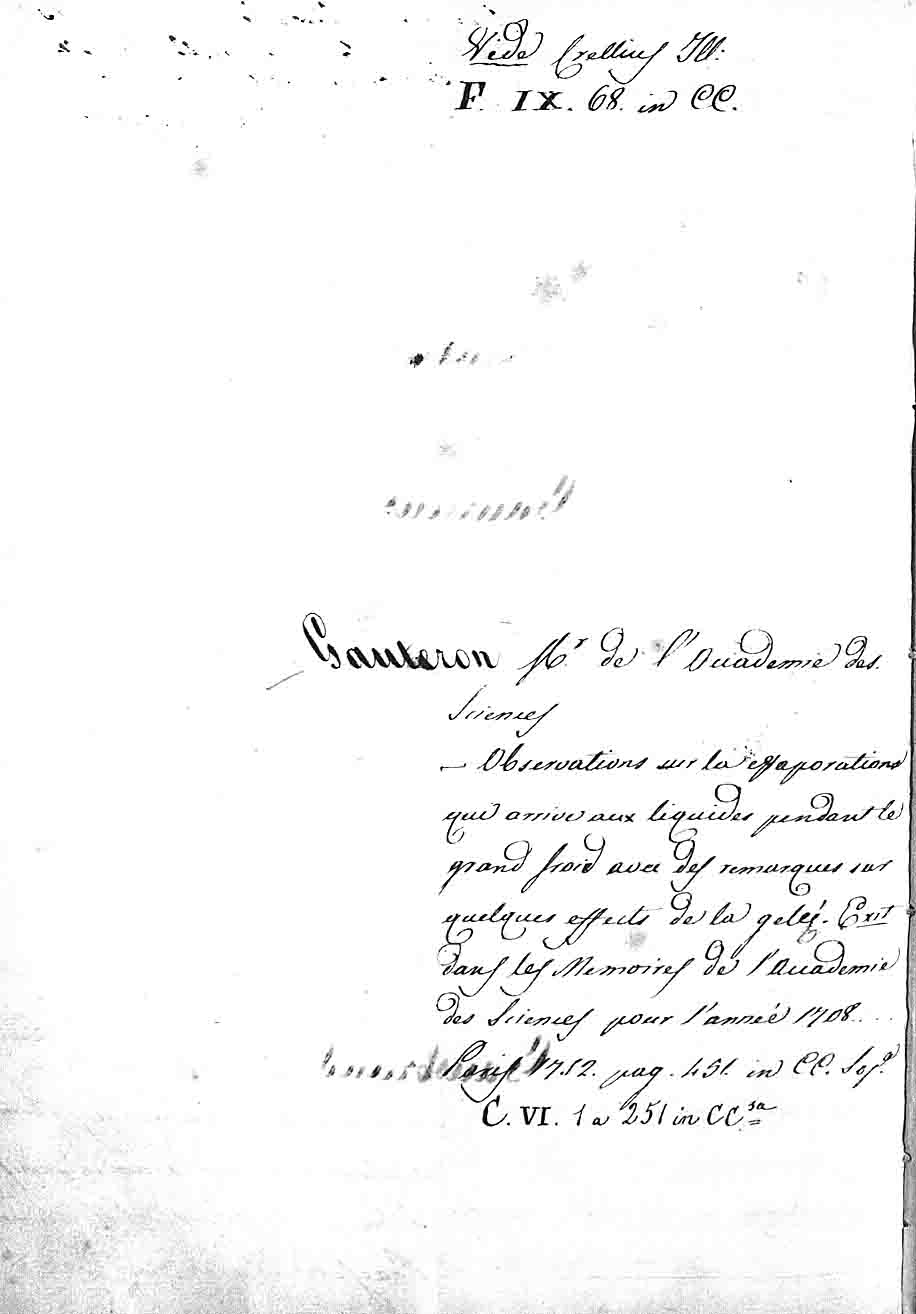 Vide Crellius Ill:
F. IX. 68. in CC.
Gauteron Mr. de l'Academie des.
Sciences
— Observations sur la evaporations
que arrive aux liquides pendant le
grand froid avec des remarques sur
quelques effects de la geleé. Exit
dans les Memoires de l'Academie
des Sciences pour l'anneé 1708....
Paris 1752. pag. 451. in CC.
C. VI. 1 a 251 in CC sa